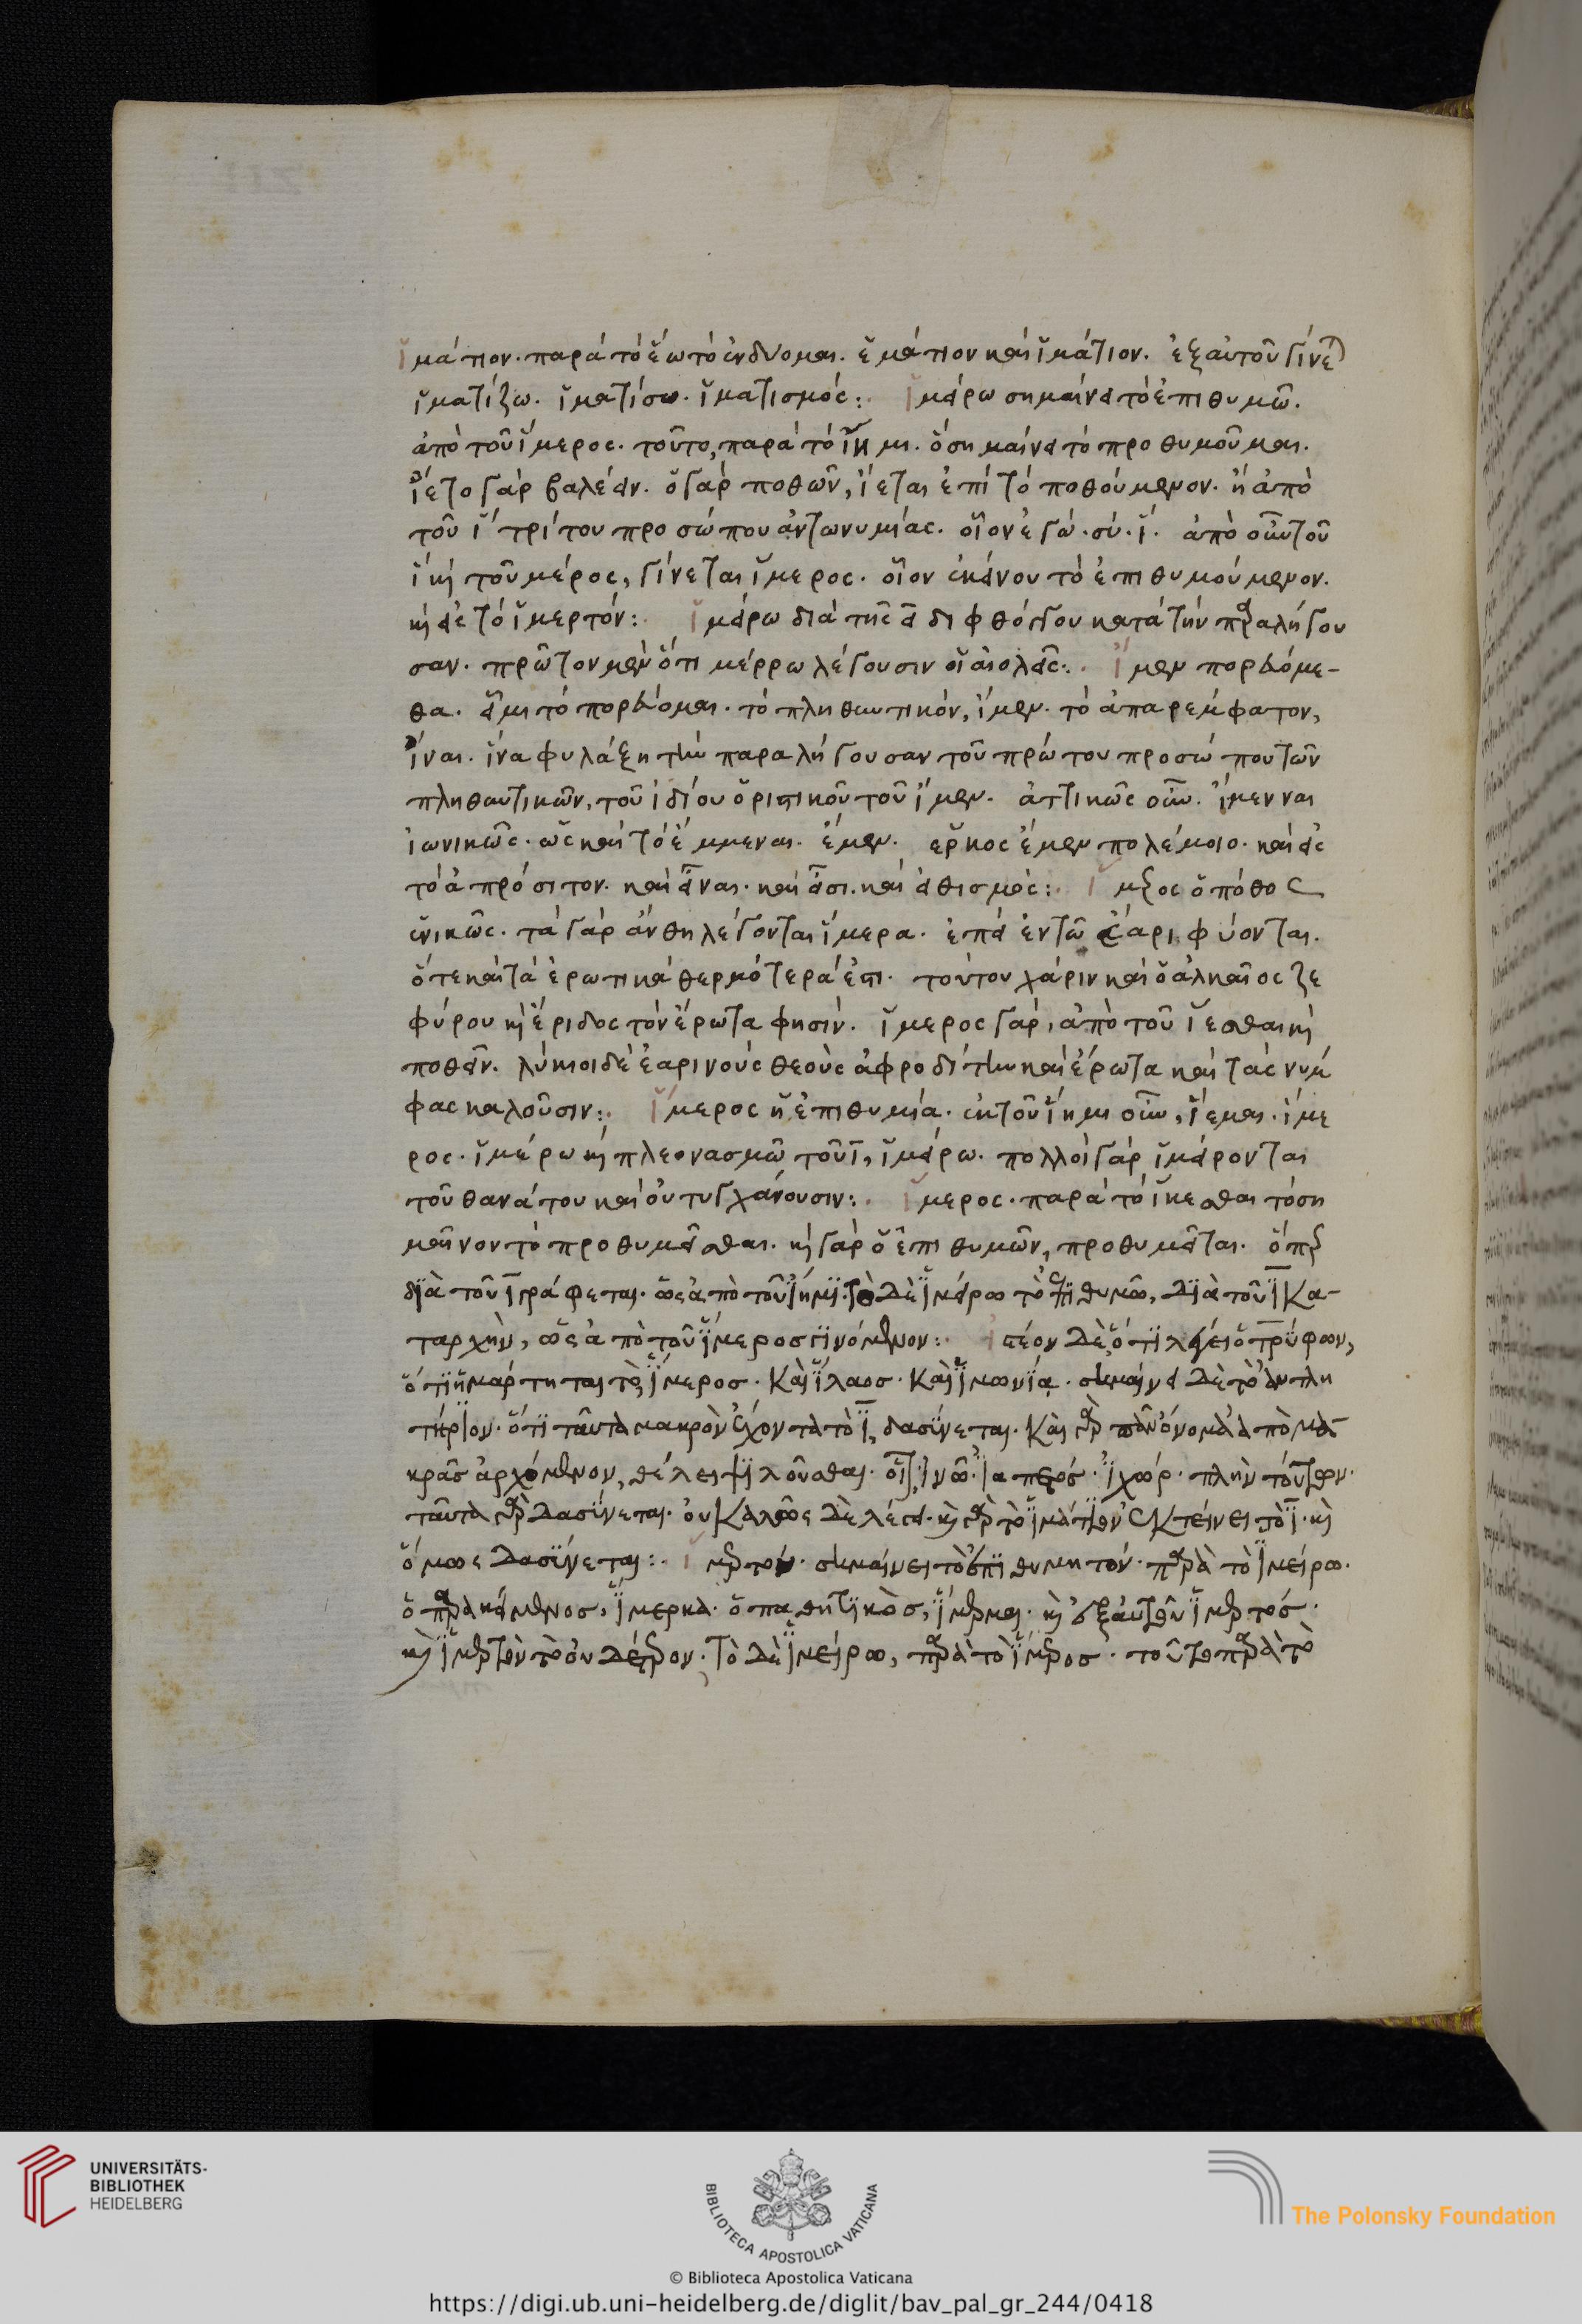 ἱμάτιον. παρὰ τὸ ἕω τὸ ἐνδύομαι. ἑμάτιον καὶ ἱμάτιον. ἐξ αὐτοῦ γίνε
ἱματίζω. ἱματίσω. ἱματισμός: ἱμείρω σημαίνει τὸ ἐπιθυμῶ.
ἀπὸ τοῦ ἵμερος. τοῦτο, παρὰ τὸ ἵημι. ὃ σημαίνει τὸ προθυμοῦμαι.
ἵετο γὰρ βαλέειν. ὁ γὰρ ποθῶν, ἵεται ἐπὶ τὸ ποθούμενον. ἢ ἀπὸ
τοῦ ἵ τρίτου προσώπου ἀντωνυμίας. οἷον ἐγώ. σύ. ἵ. ἀπὸ οὖν τοῦ
ἵ καὶ τοῦ μέρος, γίνεται ἵμερος. οἷον ἐκείνου τὸ ἐπιθυμούμενον.
καὶ εἰς τὸ ἱμερτόν: ἱμείρω διὰ τῆς ει διφθόγγου κατὰ τὴν παραλήγου
σαν. πρῶτον μὲν ὅτι μέρρω λέγουσιν οἱ αἰολεῖς: ἴμεν πορευόμε-
θα. εἶμι τὸ πορεύομαι. τὸ πληθυντικόν, ἴμεν. τὸ ἀπαρέμφατον,
ἴναι. ἵνα φυλάξῃ τὴν παραλήγουσαν τοῦ πρώτου προσώπου τῶν
πληθυντικῶν, τοῦ ἰδίου ὁριστικοῦ τοῦ ἴμεν. ἀττικῶς οὖν. ἴμενναι
ἰωνικῶς. ὡς καὶ τὸ ἔμμεναι. ἔμεν. ἕρκος ἔμεν πολέμοιο. καὶ εἰς
τὸ ἀπρόσιτον. καὶ εἶναι. καὶ εἶσι. καὶ εἰθισμός: ἵμερος ὁ πόθος
ἑνικῶς. τὰ γὰρ ἄνθη λέγονται ἵμερα. ἐπεὶ ἐν τῷ ἔαρι φύονται.
ὅτε καὶ τὰ ἐρωτικὰ θερμότερά ἐστι. τούτου χάριν καὶ ὁ ἀλκαῖος ζε
φύρου καὶ ἔριδος τὸν ἔρωτα φησίν. ἵμερος γάρ, ἀπὸ τοῦ ἵεσθαι καὶ
ποθεῖν. λύκιοι δὲ ἐαρινοὺς θεοὺς ἀφροδίτην καὶ ἔρωτα καὶ τὰς νύμ
φας καλοῦσιν: ἵμερος ἡ ἐπιθυμία. ἐκ τοῦ ἵημι οὖν, ἵεμαι. ἵμε
ρος. ἱμέρω καὶ πλεονασμῷ τοῦ ι, ἱμείρω. πολλοὶ γὰρ ἱμείρονται
τοῦ θανάτου καὶ οὐ τυγχάνουσιν: ἵμερος. παρὰ τὸ ἵκεσθαι τὸ ση
μαῖνον τὸ προθυμεῖσθαι. καὶ γὰρ ὁ ἐπιθυμῶν, προθυμεῖται. ὅπερ
διὰ τοῦ ι γράφεται. ὡς ἀπὸ τοῦ ἵημι. τὸ δὲ ἱμείρω τὸ ἐπιθυμῶ, διὰ τοῦ ι κα-
ταρχὴν, ὡς ἀπὸ τοῦ ἵμερος γινόμενον: ἰστέον δὲ ὅτι λέγει ὁ τρύφων,
ὅτι ἡμάρτηται τὸ ἵμερος. καὶ ἵλαος. καὶ ἱμωνία. σημαίνει δὲ τὸ ἀντλη
τήριον. ὅτι ταῦτα μακρὸν ἔχοντα τὸ ι, δασύνεται. καὶ γὰρ πᾶν ὄνομα ἀπὸ μα
κρᾶς ἀρχόμενον, θέλει ψιλοῦσθαι. ἰνῶ. ἰατρός. ἰχώρ. πλὴν τούτων.
ταῦτα γὰρ δασύνεται. οὐ καλῶς δὲ λέγει. καὶ γὰρ τὸ ἱμάτιον ἐκτείνει τὸ ι. καὶ
ὅμως δασύνεται: ἱμερτόν. σημαίνει τὸ ἐπιθυμητόν. παρὰ τὸ ἱμείρω.
ὁ παρακείμενος, ἵμερκα. ὁ παθητικὸς, ἵμερμαι. καὶ ἐξ αὐτοῦ ἱμερτός.
καὶ ἱμερτὸν τὸ τὸ δὲ ἱμείρω, παρὰ τὸ ἵμερος. τοῦτο παρὰ τὸ
UNIVERSITÄTS-
BIBLIOTHEK
HEIDELBERG
BIBLIOTECA APOSTOLICA VATICANA
The Polonsky Foundation
© Biblioteca Apostolica Vaticana
https://digi.ub.uni-heidelberg.de/diglit/bav_pal_gr_244/0418